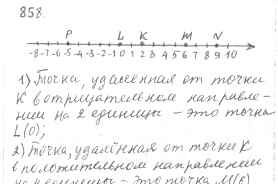 858.
P L K M N
-8 -7 -6 -5 -4 -3 -2 -1 0 1 2 3 4 5 6 7 8 9 10
1) Точка, удалённая от точки
K в отрицательном направле-
нии на 2 единицы - это точка
L(0);
2) Точка, удалённая от точки K
в положительном направлении
на 4 единицы - это точка M(6)